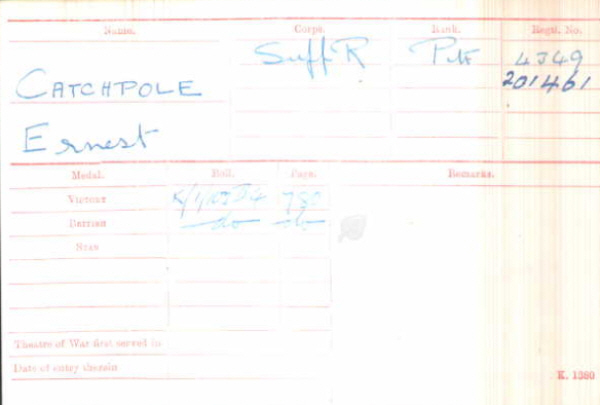 Name. Corps. Rank. Regtl. No.
Suff R Pte 4349
CATCHPOLE 201461
Ernest
Medal. Roll. Page. Remarks.
Victory 780
British do do
Star
Theatre of War first served in
Date of entry therein
K. 1380